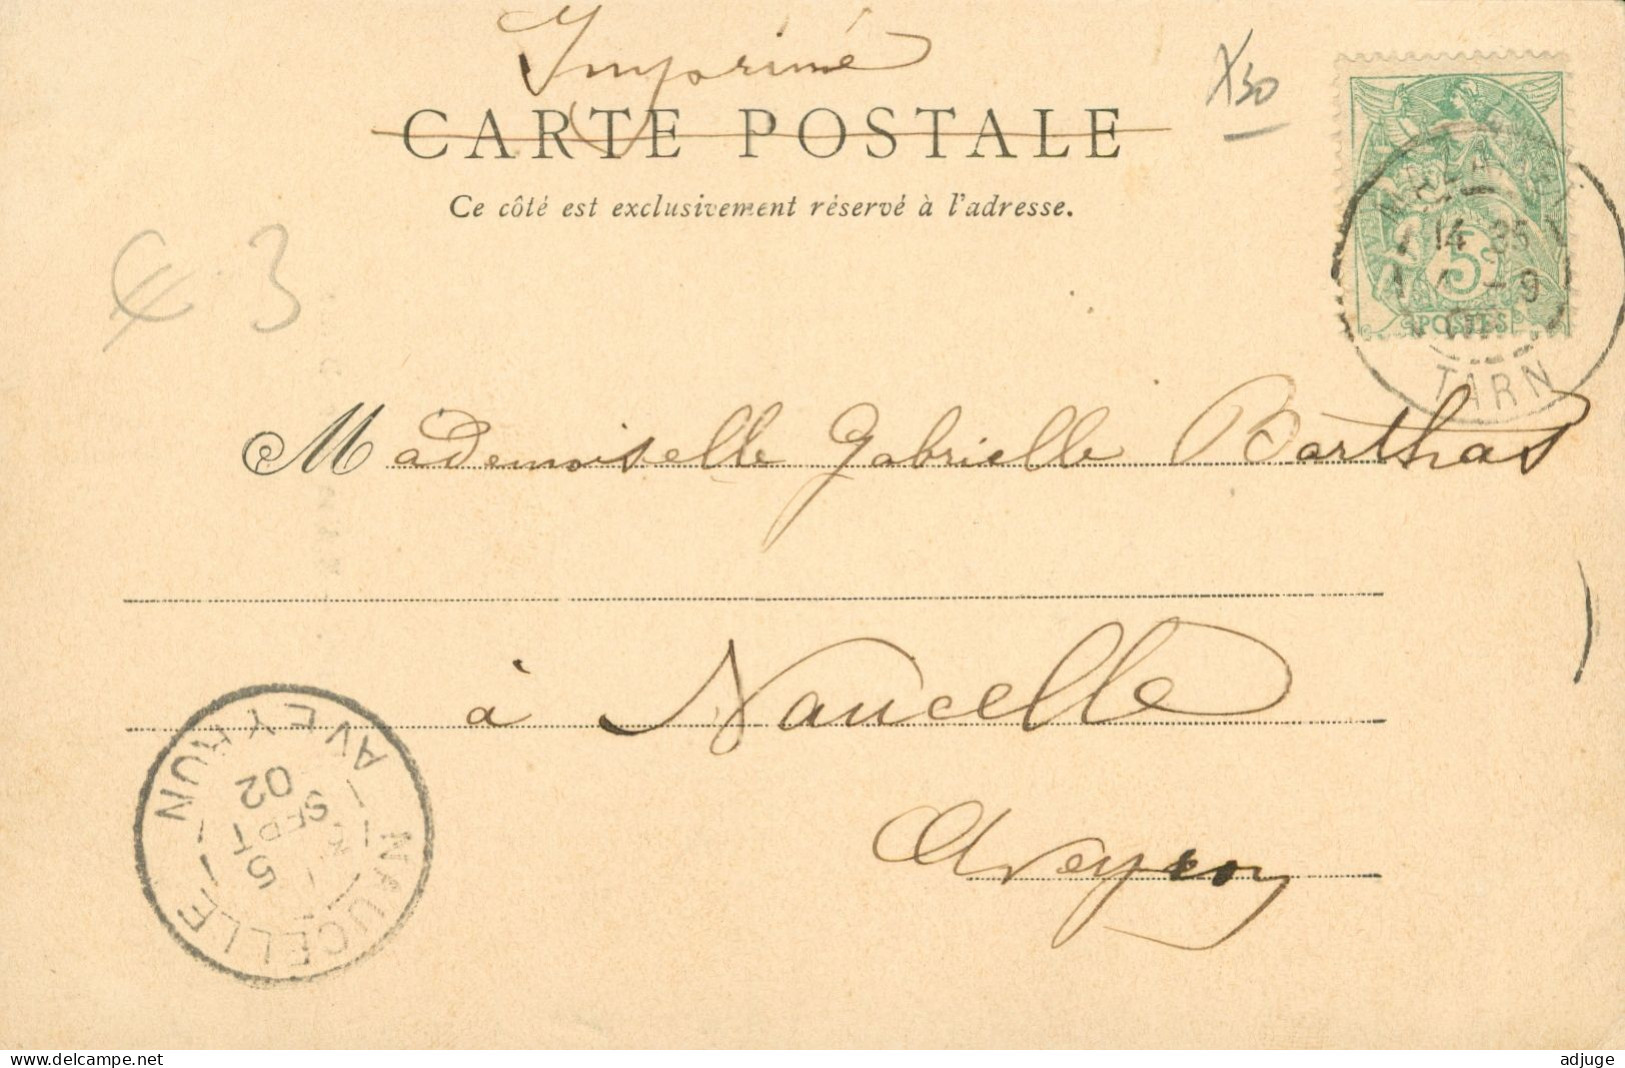 Imprimé
CARTE POSTALE
X30
Ce côté est exclusivement réservé à l'adresse.
14 35
-9
5
POSTES
TARN
€ 3
Mademoiselle Gabrielle Barthas
à Naucelle
Aveyron
NAUCELLE
AVEYRON
5
SEPT
02
www.delcampe.net
adjuge